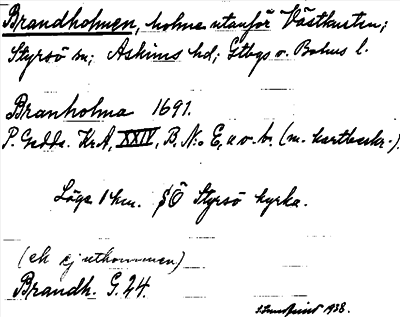 Brandholmen, holme utanför Västkusten;
Styrsö sn; Askims hd; Gtbgs o. Bohus l.
Branholma 1691.
P. Gedda. KrA, XXIV, B. N:o E, (m. kartbeskr.).
Läge 1 km. SÖ Styrsö kyrka.
(ek ej utkommen)
Brandh. G. 24.
1938.